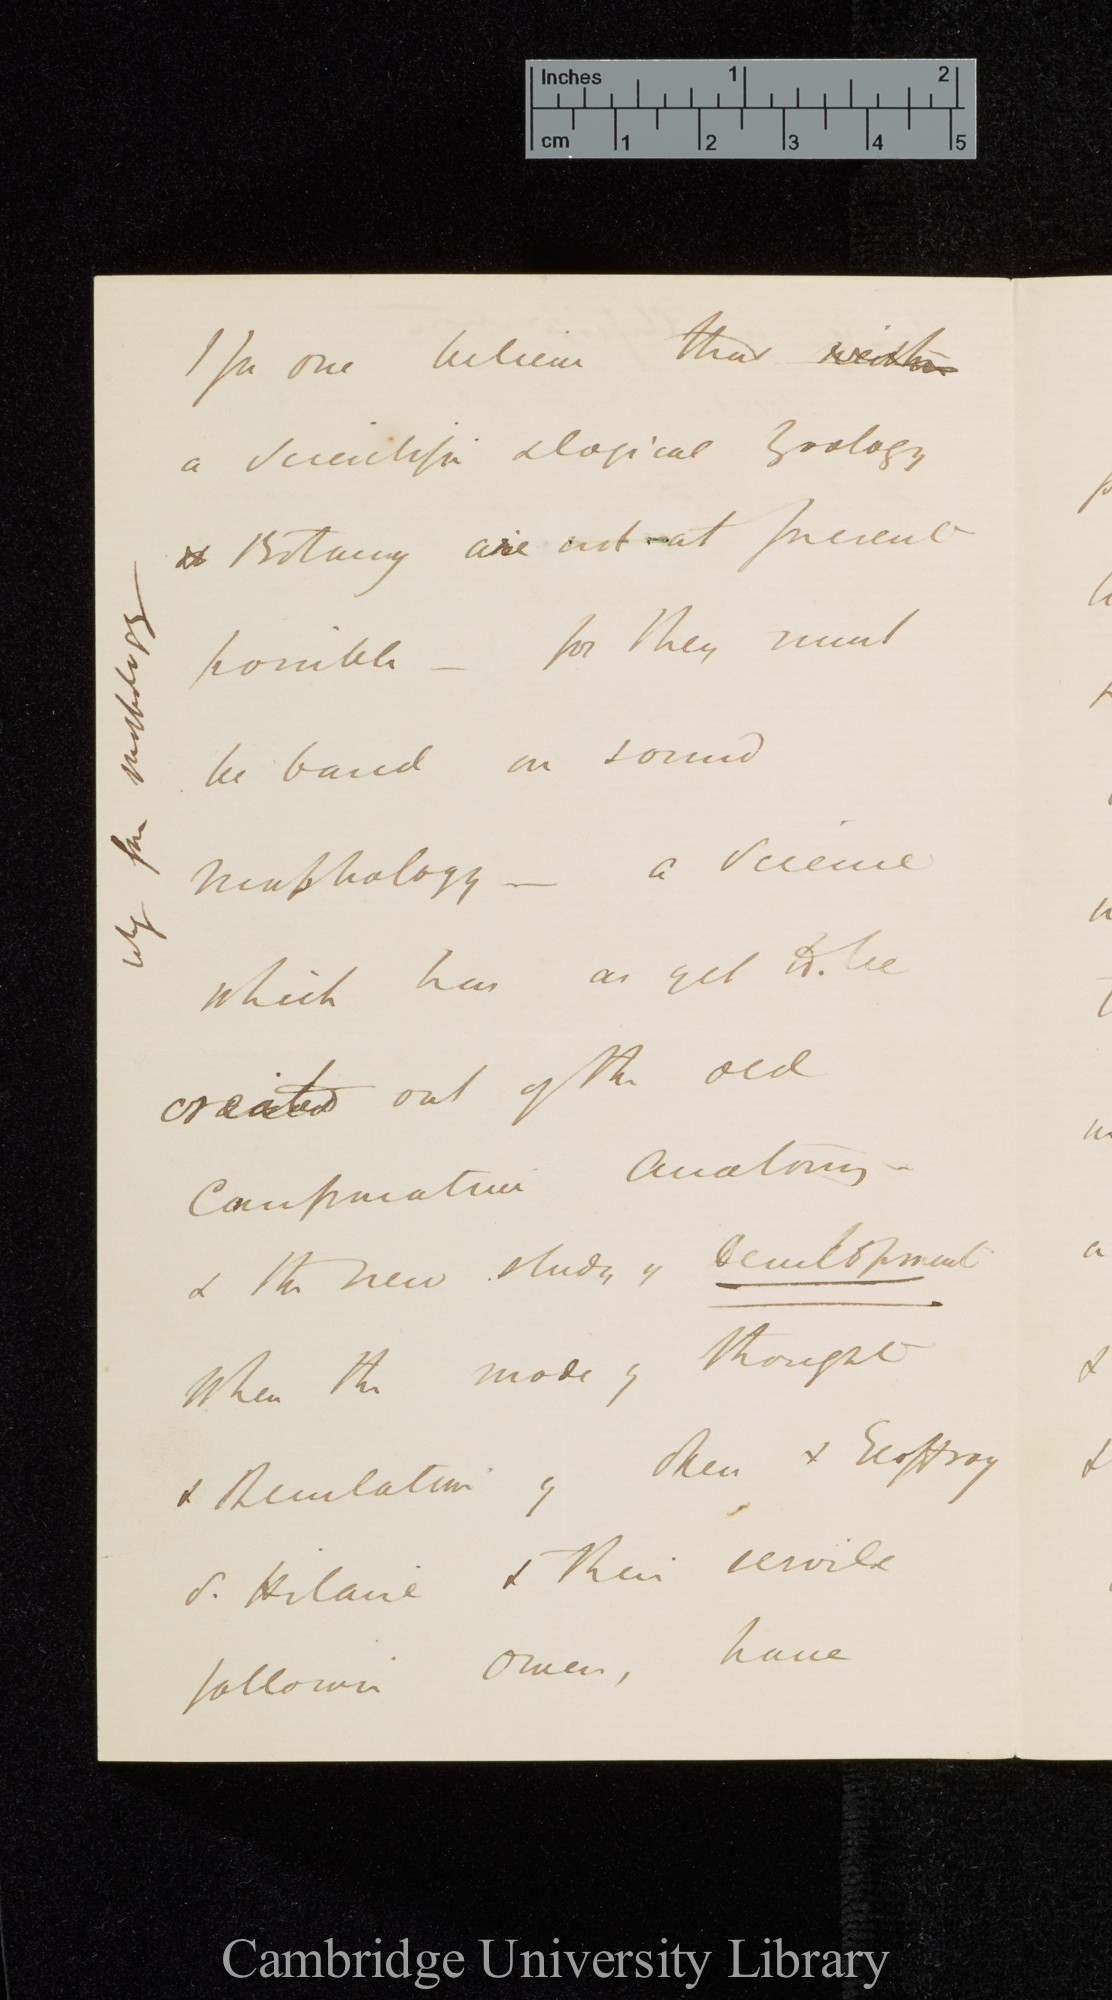 Inches 1 2
cm 1 2 3 4 5
I for one believe that neither
a scientific & logical Zoology
& Botany are not at present
possible — for they must
be based on sound
Morphology — a Science
which has as yet to be
created out of the old
Comparative Anatomy —
& the new study of Development
When the mode of thought
& speculation of Oken & Geoffroy
S. Hilaire & their servile
follower Owen, have
why for
Cambridge University Library